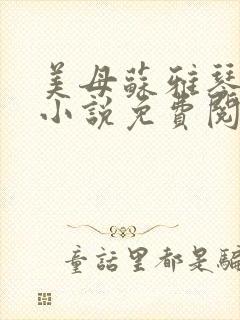 美母蘇雅琴
小說免費閱
童話里都是騙